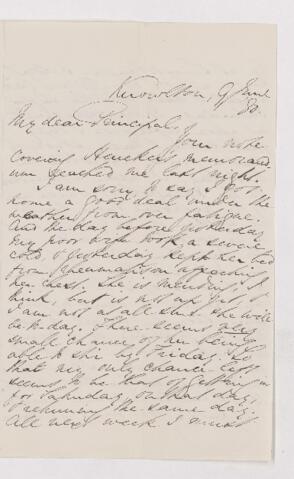 Knowlton, 9 June
80.
My dear Principal,
Your note
covering Heneker's memorand-
um reached me last night.
I am sorry to say I got
home a good deal under the
weather from over fatigue.
And the day before yesterday
my poor wife took a severe
cold, & yesterday kept her bed
from rheumatism affecting
her chest. She is mending, I
think, but is not up yet &
I am not at all sure she will
be to-day. There seems very
small chance of her being
able to stir by Friday. So
that my only chance left
seems to be that of getting in
for Saturday on that day,
& returning the same day.
All next week I must